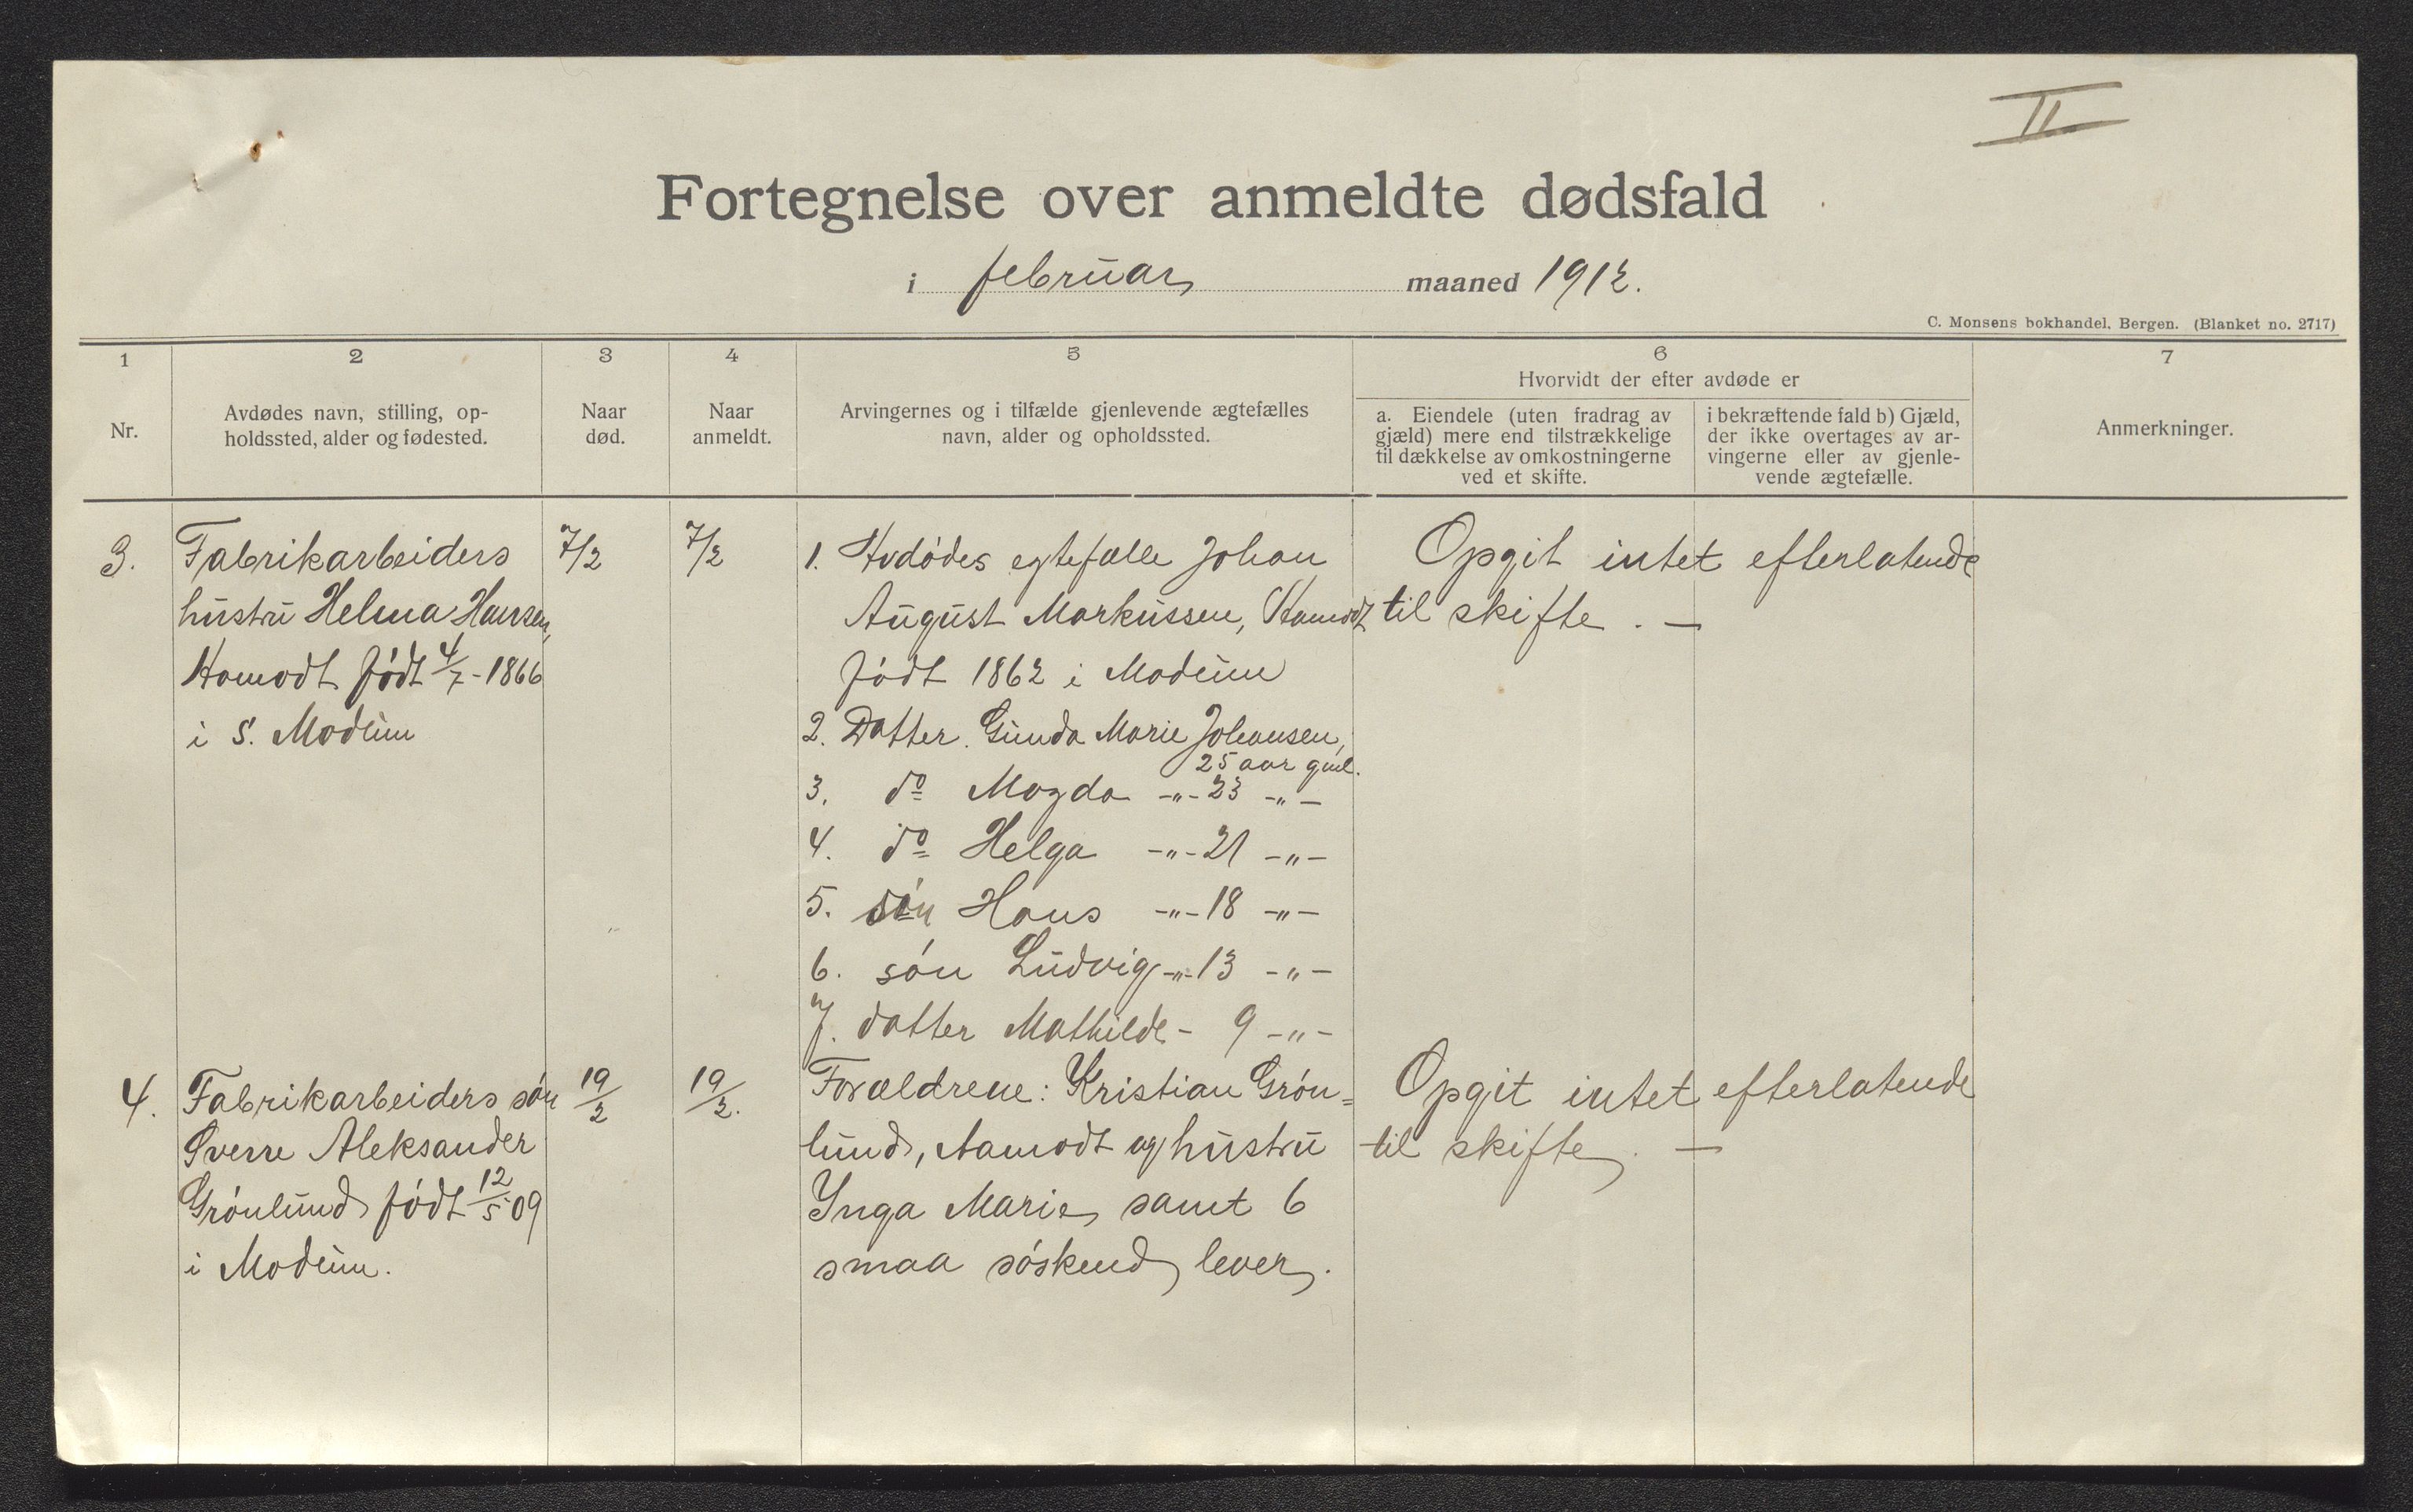 II
Fortegnelse over anmeldte dødsfald
i februar maaned 1912.
C. Monsens bokhandel, Bergen. (Blanket no. 2717)
1
2
3
4
5
6
7
Nr.
Avdødes navn, stilling, op-
holdssted, alder og fødested.
Naar
død.
Naar
anmeldt.
Arvingernes og i tilfælde gjenlevende ægtefælles
navn, alder og opholdssted.
Hvorvidt der efter avdøde er
a. Eiendele (uten fradrag av
gjæld) mere end tilstrækkelige
til dækkelse av omkostningerne
ved et skifte.
i bekræftende fald b) Gjæld,
der ikke overtages av ar-
vingerne eller av gjenle-
vende ægtefælle.
Anmerkninger.
3.
Fabrikarbeiders
hustru Helma Hansen,
Aamodt født 4/7-1866
i S. Modum
7/2
7/2
1. Avdødes egtefælle Johan
August Markussen, Aamodt
født 1862 i Modum
2. Datter. Gunda Marie Johansen,
25 aar gml.
3. do Magda -"- 23 -"-
4. do Helga -"- 21 -"-
5. søn Hans -"- 18 -"-
6. søn Ludvig -"- 13 -"-
7. datter Mathilde - 9 -"-
Opgit intet efterlatende
til skifte. —
4.
Fabrikarbeiders søn
Sverre Aleksander
Grønlund født 12/5 09
i Modum.
19/2
19/2.
Forældrene: Kristian Grøn=
lund, Aamodt og hustru
Inga Marie samt 6
smaa søskend lever.
Opgit intet efterlatende
til skifte. —